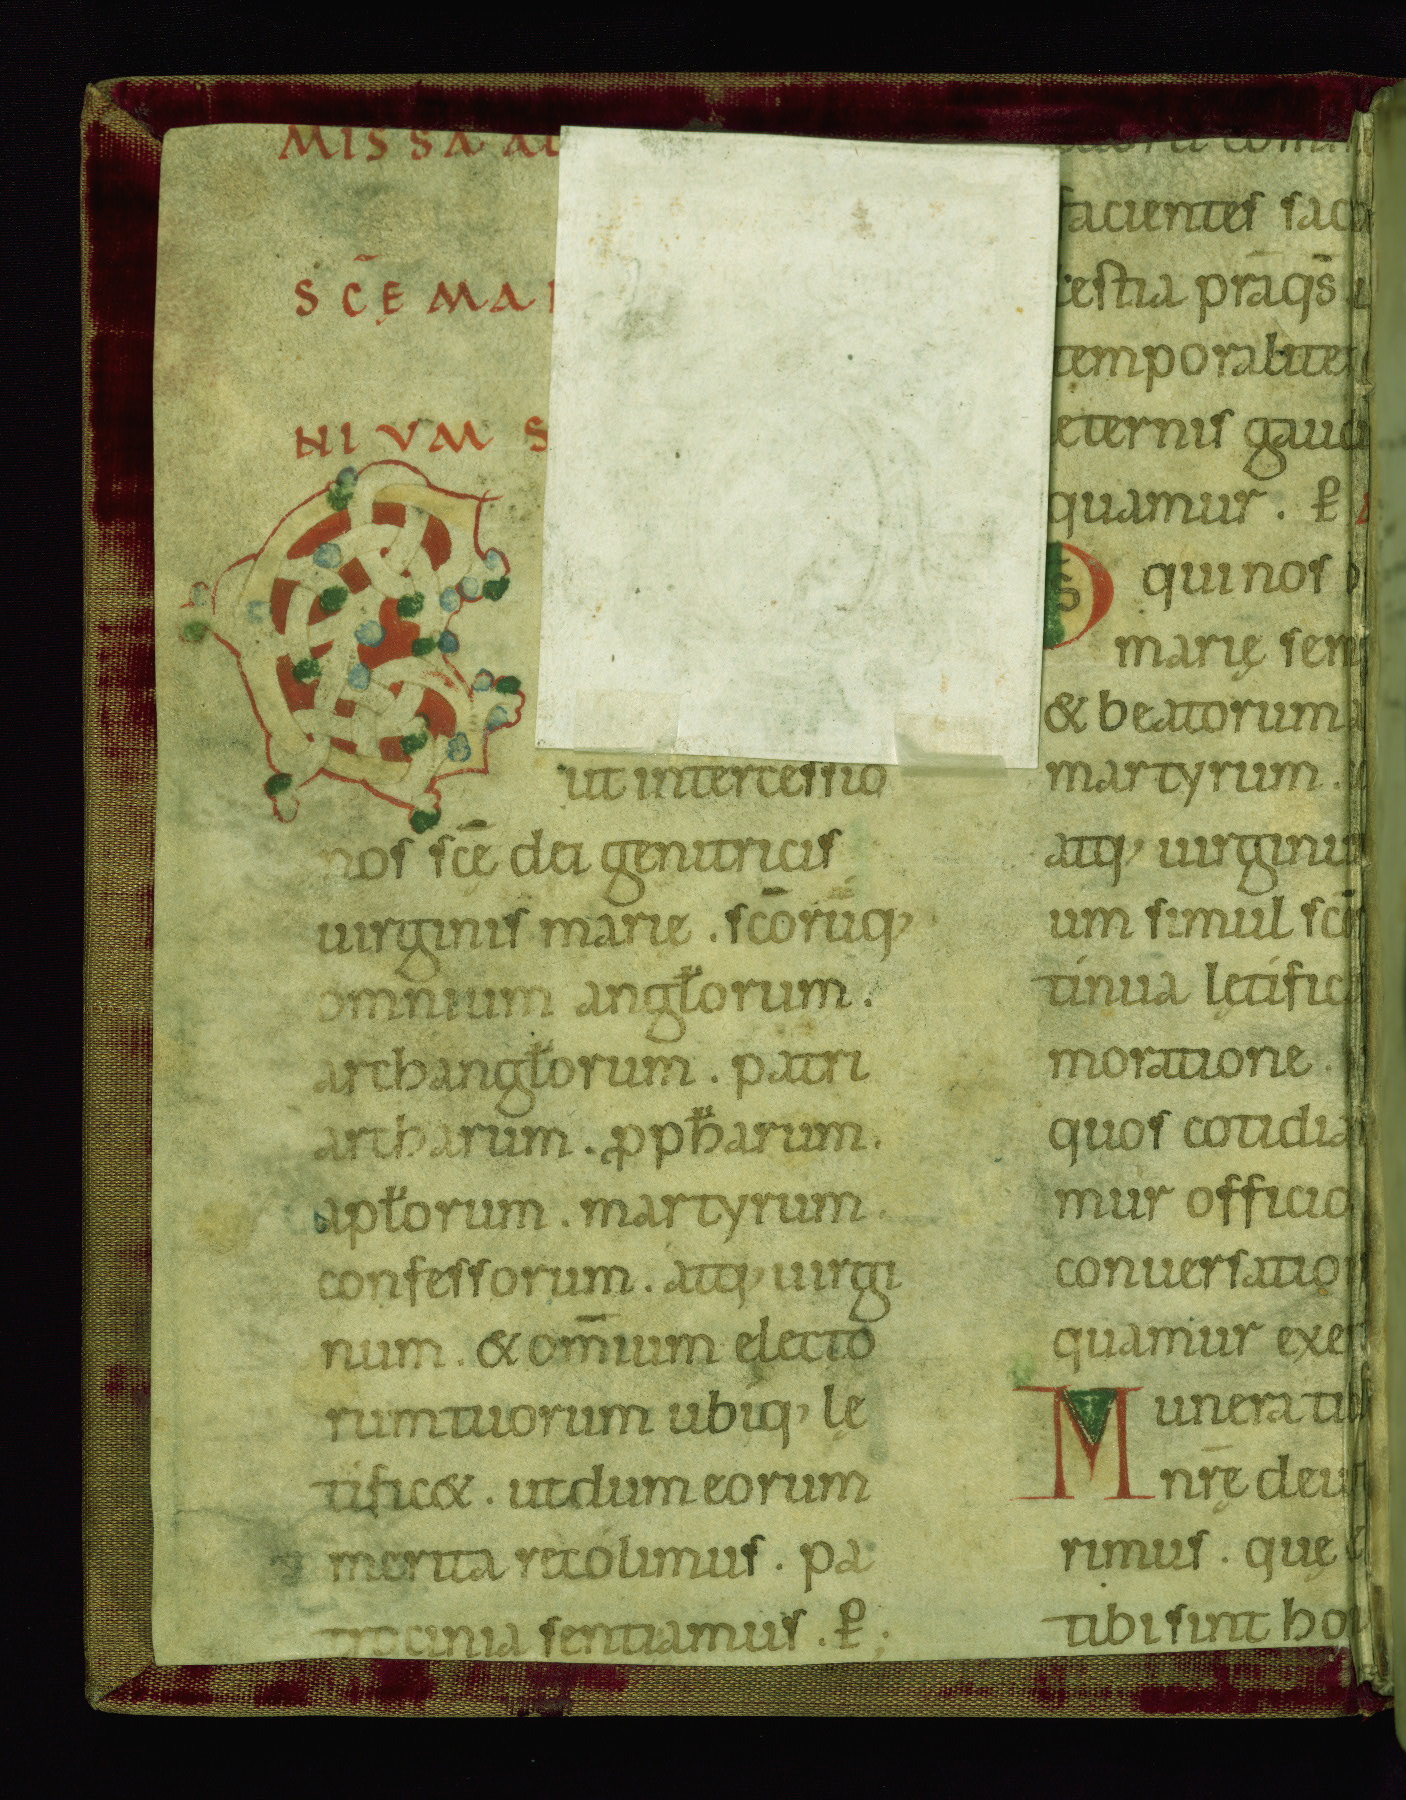 MISSA AD
SC̄Ę MAR
NIVM S
ut intercessio
nos sc̄ę dei genitricis
uirginis marie . sc̄orūq;
omnium angl̄orum .
archangl̄orum . patri
archarum . pph̄arum .
apl̄orum . martyrum .
confessorum . atq; uirgi
num . & om̄ium electo
rum tuorum ubiq; lę
tific& . ut dum eorum
merita recolimus . pa
trocinia sentiamus . P̱ ;
facientes sac
cestia prąqs̄
temporaliter
eternis gaud
quamur . P̱
DS qui nos b
marię sem
& beatorum
martyrum .
atq; uirginu
um simul sc̄
tinua lętific
moratione .
quos cotidia
mur officio
conuersation
quamur exe
Munera tu
nr̄ę deu
rimus . quę &
tibi sint ho